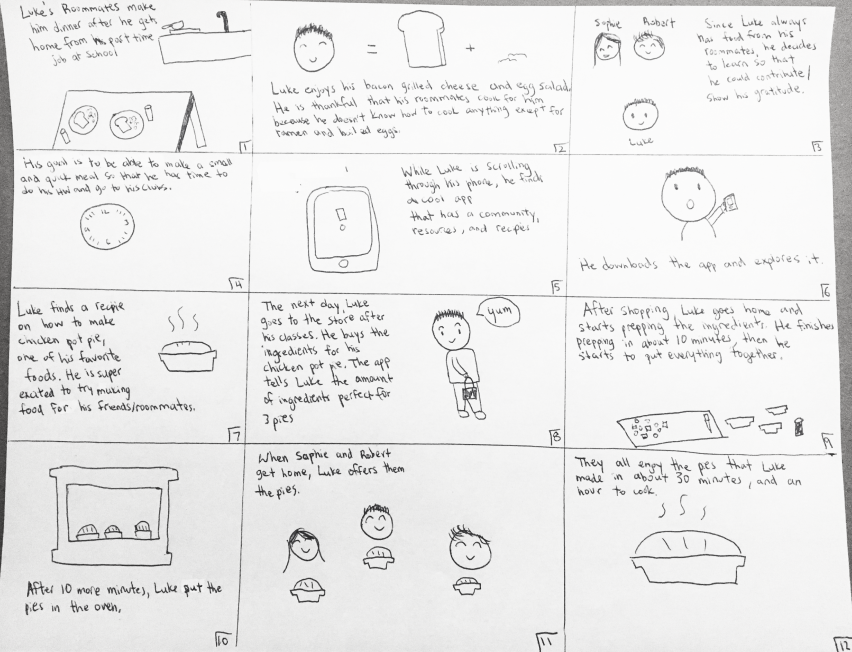 Luke's Roommates make
him dinner after he gets
home from his part time
job at School
1
=
+
Luke enjoys his bacon grilled cheese and egg salad.
He is thankful that his roommates cook for him
because he doesn't know how to cook anything except for
ramen and boiled eggs.
2
Sophie Robert
Since Luke always
has food from his
roommates, he decides
to learn so that
he could contribute/
show his gratitude.
Luke
3
His goal is to be able to make a small
and quick meal so that he has time to
do his HW and go to his clubs.
12
3
6
9
4
While Luke is scrolling
through his phone, he finds
a cool app
that has a community,
resources, and recipies
5
He downloads the app and explores it.
6
Luke finds a recipie
on how to make
chicken pot pie,
one of his favorite
foods. He is super
excited to try making
food for his friends/roommates.
7
The next day, Luke
goes to the store after
his classes. He buys the
ingredients for his
chicken pot pie. The app
tells Luke the amount
of ingredients perfect for
3 pies
yum
8
After shopping, Luke goes home and
starts prepping the ingredients. He finishes
prepping in about 10 minutes, then he
starts to put everything together.
9
After 10 more minutes, Luke put the
pies in the oven,
10
When Sophie and Robert
get home, Luke offers them
the pies.
11
They all enjoy the pies that Luke
made in about 30 minutes, and an
hour to cook.
12